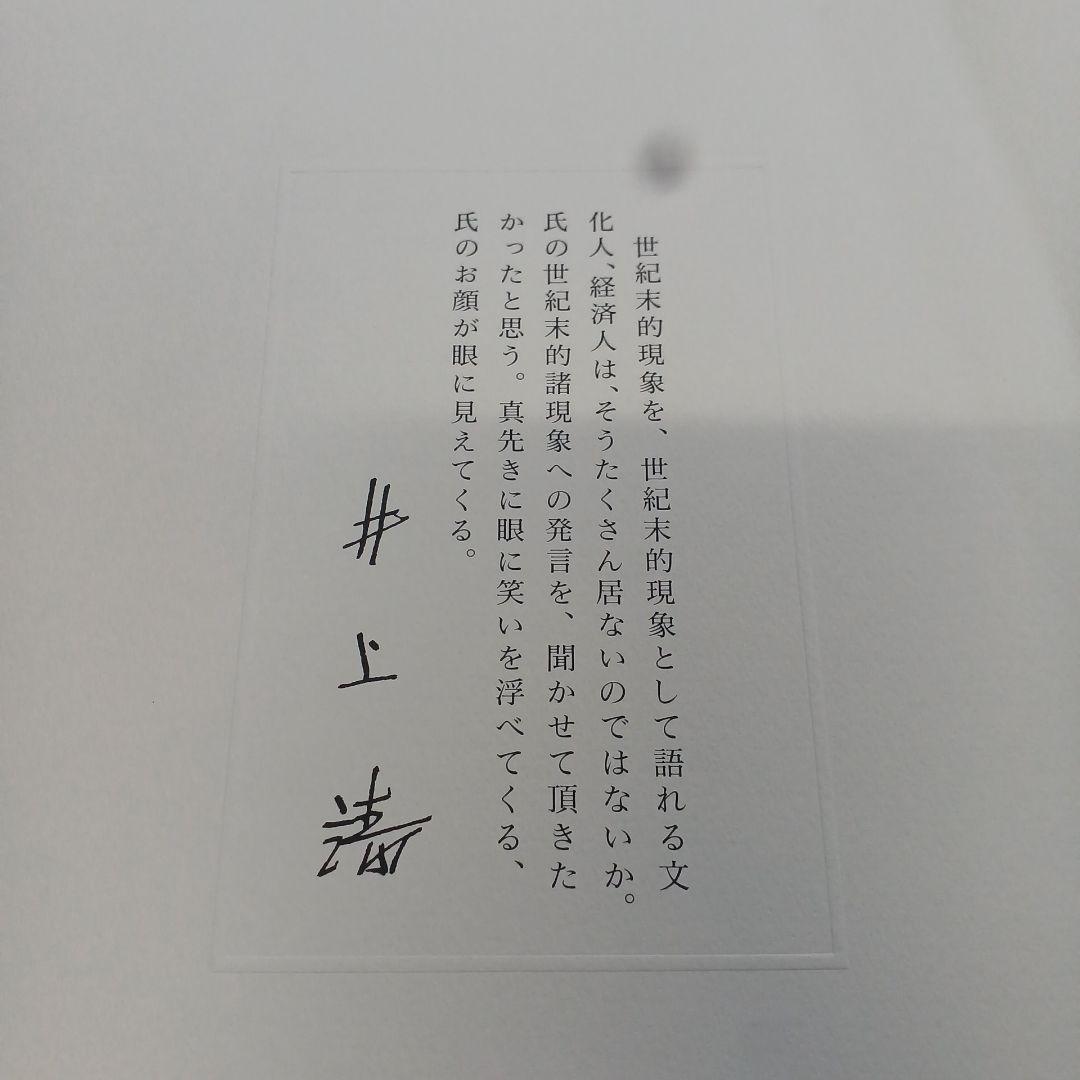 世紀末的現象を、世紀末的現象として語れる文
化人、経済人は、そうたくさん居ないのではないか。
氏の世紀末的諸現象への発言を、聞かせて頂きた
かったと思う。真先きに眼に笑いを浮べてくる、
氏のお顔が眼に見えてくる。
井上靖